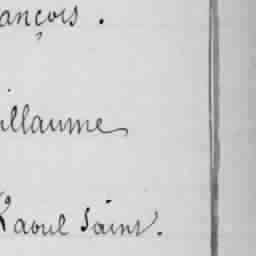 ançois.
illaume
Raoul Saint.